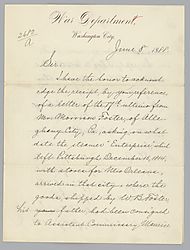 War Department,
Washington City,
June 5, 188
Sir:
I have the honor to acknowl
edge the receipt, by your reference,
of a letter of the 17th ultimo from
Mrs. Morrison Foster, of Alle-
ghany City, Pa., asking on what
date the steamer "Enterprise" she
left Pittsburgh December 10, 1814,
with stores for New Orleans,
arrived in that city, where the
goods, shipped by W. B. Foster,
his father, had been consigned
to Assistant Commissary